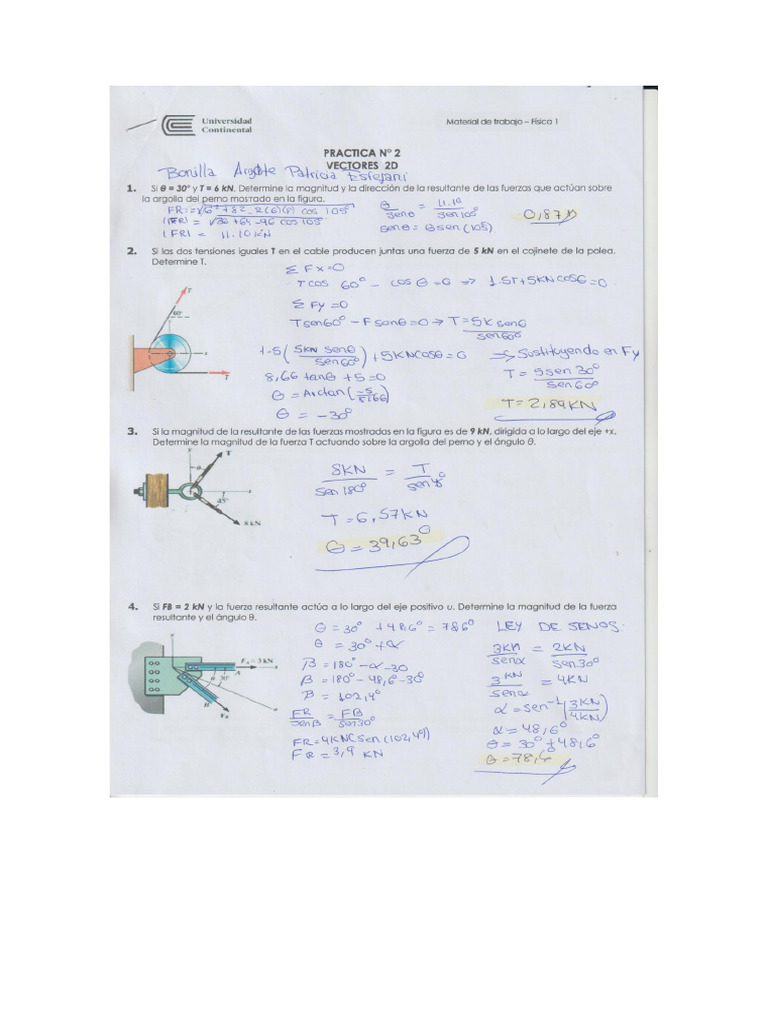 Universidad
Continental
Material de trabajo – Física 1
PRACTICA N° 2
VECTORES 2D
Bonilla Argote Patricia Estefani
1. Si θ = 30° y T = 6 kN. Determine la magnitud y la dirección de la resultante de las fuerzas que actúan sobre
la argolla del perno mostrado en la figura.
|FR| = √36+64-96 cos 105°
|FR| = 11.10 KN
θ/senθ = 11.10/sen105°
senθ = θ sen (105)
2. Si las dos tensiones iguales T en el cable producen juntas una fuerza de 5 kN en el cojinete de la polea.
Determine T.
Σ Fx=0
Tcos 60° - cos θ=0 ⇒ 1.5T+5KNcosθ=0
Σ Fy=0
Tsen60° - Fsenθ=0 → T=5K senθ/sen60°
1.5(5KN senθ/sen60°)+5KNcosθ=0
⇒ Sustituyendo en Fy
8,66 tanθ +5=0
T= 5sen30°/sen60°
θ=Arctan(-5/8,66)
θ = -30°
T=2,89KN
T
60°
x
T
3. Si la magnitud de la resultante de las fuerzas mostradas en la figura es de 9 kN, dirigida a lo largo del eje +x.
Determine la magnitud de la fuerza T actuando sobre la argolla del perno y el ángulo θ.
y
T
θ
x
45°
8 kN
8KN/sen180° = T/sen45°
T=6,57KN
θ=39,63°
4. Si FB = 2 kN y la fuerza resultante actúa a lo largo del eje positivo u. Determine la magnitud de la fuerza
resultante y el ángulo θ.
y
F_A = 3 kN
x
A
θ 30°
B
F_B
θ=30° +48,6=78,6°
θ = 30°+α
β=180°-α-30
β=180°-48,6-30°
β=102,4°
FR/senβ = FB/sen30°
FR=4KN(Sen(102,4°))
FR=3,9 KN
LEY DE SENOS.
3KN/senα = 2KN/sen30°
3KN/senα = 4KN
α=sen⁻¹(3KN/4KN)
α=48,6°
θ=30°+48,6°
θ=78,6